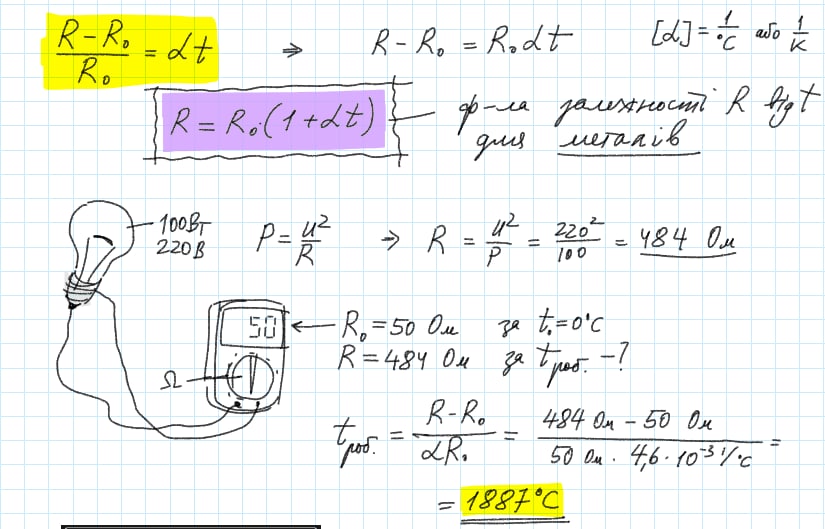 (R − R₀)/R₀ = αt ⇒ R − R₀ = R₀αt [α] = 1/°C або 1/K
R = R₀·(1 + αt) — ф-ла залежності R від t
для металів
100Вт
220В
P = U²/R → R = U²/P = 220²/100 = 484 Ом
50 ← R₀ = 50 Ом за t₀ = 0°C
Ω R = 484 Ом за tроб. − ?
tроб. = (R − R₀)/(αR₀) = (484 Ом − 50 Ом)/(50 Ом · 4,6 · 10⁻³ 1/°C) =
= 1887°C